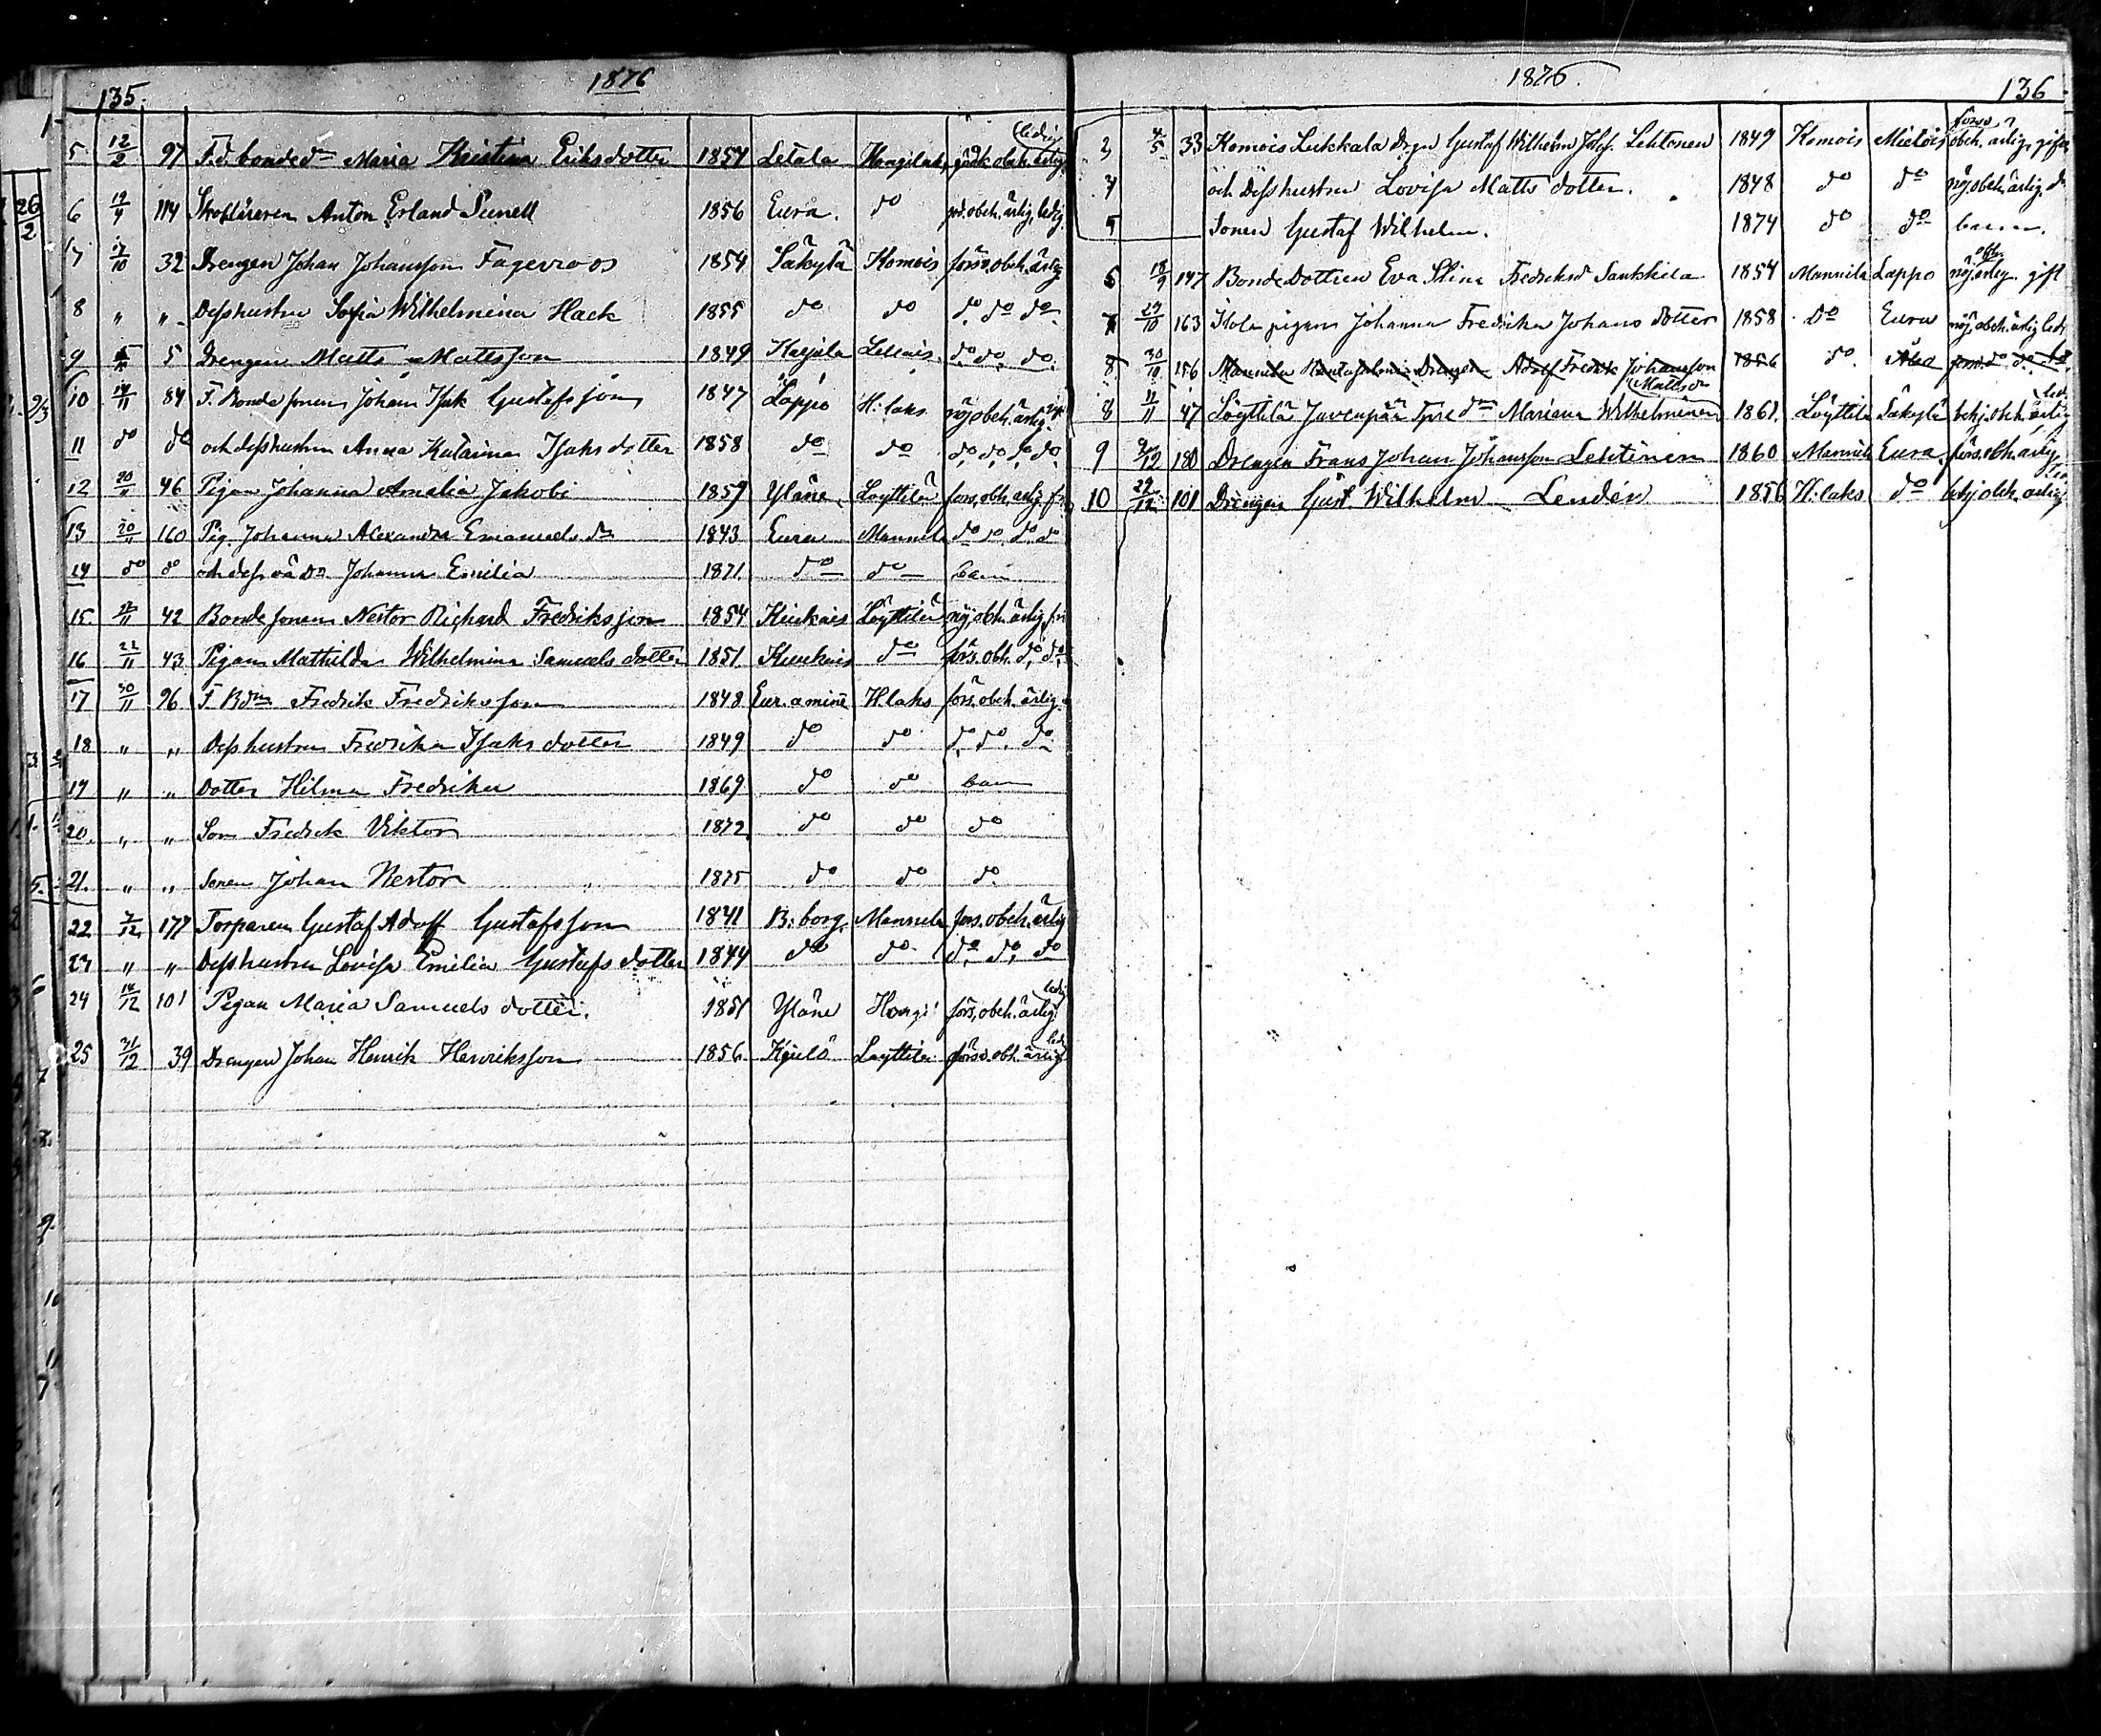 135. 1876
5 12/2 97 F.d. bonded:n Maria Kristina Eriksdotter 1854 Letala godk. obeh. ledig
6 114 Anton Erland Sunell 1856 Eura. do god. obeh. ärlig, ledig
7 /10 32 Drengen Johan Johansson Fageroos 1854 Säkylä Komois försv. obeh. ärlig
8 " " Desshustru Sofia Wilhelmina Hack 1855 do do do do do
9 5 Drengen Matts Mattsson 1849 do. do. do.
10 /11 84 F. Bonde sonen Johan Isak Gustafsson 1847 Lappo H:laks nöj obeh. ärlig.
11 do do och desshustru Anna Katarina Isaksdotter 1858 do do do. do. do. do.
12 20/11 46 Pigan Johanna Amalia Jakobs 1859 Yläne Löyttilä förs. obh. ärlig. fri
13 20/11 160 Pig. Johanna Alexandra Emanuels dr 1843 Eura Mannila do do. do. do
14 do do och dess oä dr Johanna Emilia 1871 do do barn
15 22/11 42 Bonde sonen Nestor Richard Fredriksson 1854 Kiukais Löyttilä nöj. obh. ärlig, fri
16 22/11 43 Pigan Mathilda Wilhelmina Samuels dotter 1851 Kiukais do förs. obh. do. do
17 30/11 96 F Bdn Fredrik Fredriksson 1848 H.laks förs. obeh. ärlig.
18 " " Desshustru Fredrika Isaks dotter 1849 do do do. do. do.
19 " " Dotter Hilma Fredrika 1869 do do barn
20. " " Son Fredrik Viktor 1872 do do do
21. " " Sonen Johan Nestor 1875 do do do.
22 7/12 177 Torparen Gustaf Adolf Gustafsson 1841 B:borg. Mannila fors. obeh. ärlig
23 " " Desshustru Lovisa Emilia Gustafs dotter 1844 do do do. do. do
24 14/12 101 Pigan Maria Samuels dotter. 1851 Yläne Hongi förs. obeh. ärlig. ledig
25 31/12 39 Drengen Johan Henrik Henriksson 1856 Kjulo Löyttilä försv. obh. ärlig led
1876. 136
3 4/5 33 Komois Lukkala Drgn Gustaf Wilhelm Lehtonen 1849 Komois Mietois försv. obeh. ärlig, gift
4 och Desshustru Lovisa Matts dotter. 1848 do do nöj. obeh. ärlig. do
5 Sonen Gustaf Wilhelm. 1874 do do barn.
6 18/9 147 Bonde Dottren Eva Stina Fredriksd Sankkila 1854 Mannila Lappo nöj. obh ärlig. gift
7 29/10 163 pigan Johanna Fredrika Johans dotter 1858 Do Eura nöj. obeh. ärlig led.
8 30/10 156 Mannila Drengen Adolf Fredrik Johansson 1856 do. Åbo försv. do do.
8 /11 47 Löyttilä Juvenpää Mariana Wilhelmina Mattsdr 1861. Löyttilä Säkylä behj. obeh. ärlig led.
9 9/12 180 Drengen Frans Johan Johansson Lehtinen 1860 Mannila Eura förs. obh. ärlig,
10 29/12 101 Drengen Gust. Wilhelm Lendén 1856 H:laks do behj obeh. ärlig